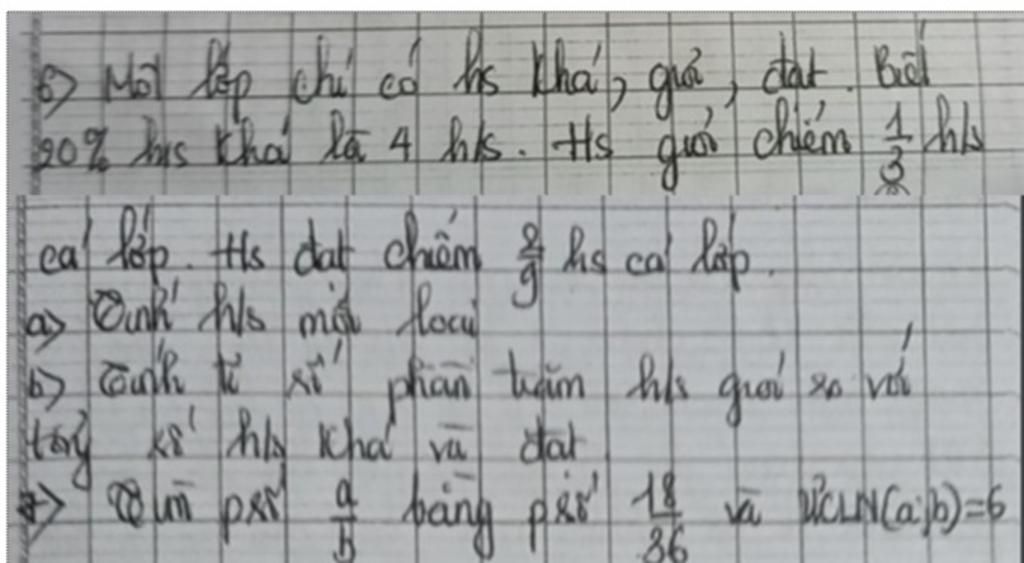 6) Một lớp chỉ có hs khá, giỏi, đạt. Biết
20% hs khá là 4 h/s. Hs giỏi chiếm 1/3 h/s
cả lớp. Hs đạt chiếm 2/9 hs cả lớp.
a) Tính h/s mỗi loại
b) Tính tỉ số phần trăm h/s giỏi so với
tổng số h/s khá và đạt
7) Tìm psố a/b bằng psố 18/36 và ƯCLN(a;b)=6